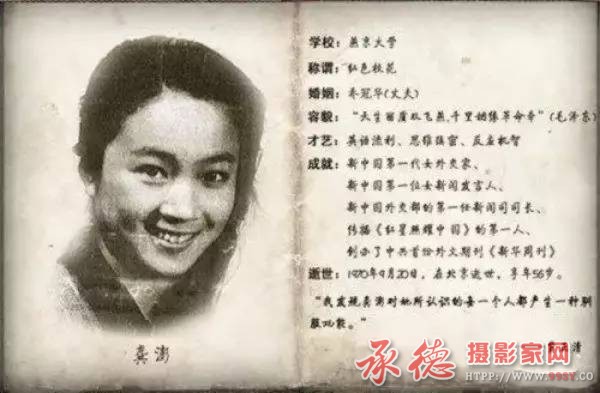 学校：燕京大学
称谓：红色校花
婚姻：乔冠华(丈夫)
容貌："天生丽质双飞燕,千里姻缘革命牵"(毛泽东)
才艺：英语流利、思维缜密、反应机智
成就：新中国第一代女外交家、
新中国第一位女新闻发言人、
新中国外交部的第一任新闻司司长、
传播《红星照耀中国》的第一人、
创办了中共首份外文期刊《新华周刊》
逝世：1970年9月20日，在北京逝世，享年56岁。
"我发现龚澎对她所认识的每一个人都产生一种驯
服功能。"
清
龚澎
承德 摄影家网
HTPP://WWW.